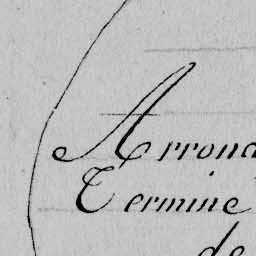 Arrond
Termine
de